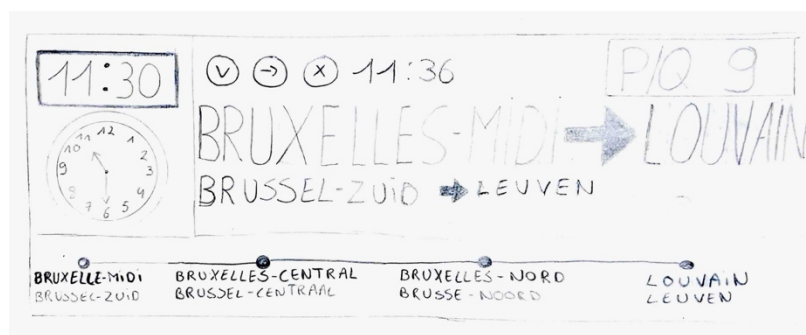 11:30
V → X 11:36
P/Q 9
BRUXELLES-MiDi → LOUVAIN
BRUSSEL-ZUiD → LEUVEN
12
1
2
3
4
5
6
7
8
9
10
11
BRUXELLE-MiDi
BRUSSEL-ZUiD
BRUXELLES-CENTRAL
BRUSSEL-CENTRAAL
BRUXELLES-NORD
BRUSSE-NOORD
LOUVAiN
LEUVEN